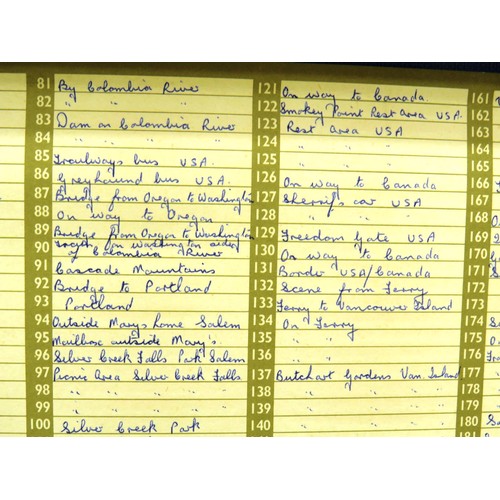 81 By Colombia River
82 " " "
83 Dam on Colombia River
84 " " " "
85 Trailways bus USA.
86 Greyhound bus USA.
87 Bridge from Oregon to Washington
88 On way to Oregon
89 Bridge from Oregon to Washington
90 from Washington side of Colombia River
91 Cascade Mountains
92 Bridge to Portland
93 Portland
94 Outside Marys home Salem
95 Mailbox outside Mary's
96 Silver Creek Falls Park Salem
97 Picnic Area Silver Creek Falls
98 " " " "
99 " " "
100 Silver Creek Park
121 On way to Canada
122 Smokey Point Rest Area USA.
123 Rest Area USA
124 " " "
125 " " "
126 On way to Canada
127 Sherrifs car USA
128 " " "
129 Freedom Gate USA
130 On way to Canada
131 Border USA/Canada
132 Scene from Ferry
133 Ferry to Vancouver Island
134 On Ferry
135 " "
136 " "
137 Butchart Gardens Van. Island
138 " " "
139 " " "
140 " " "
161
162
163
164
165
166
167
168
169
170
171
172
173
174
175
176
177
178
179
180
181